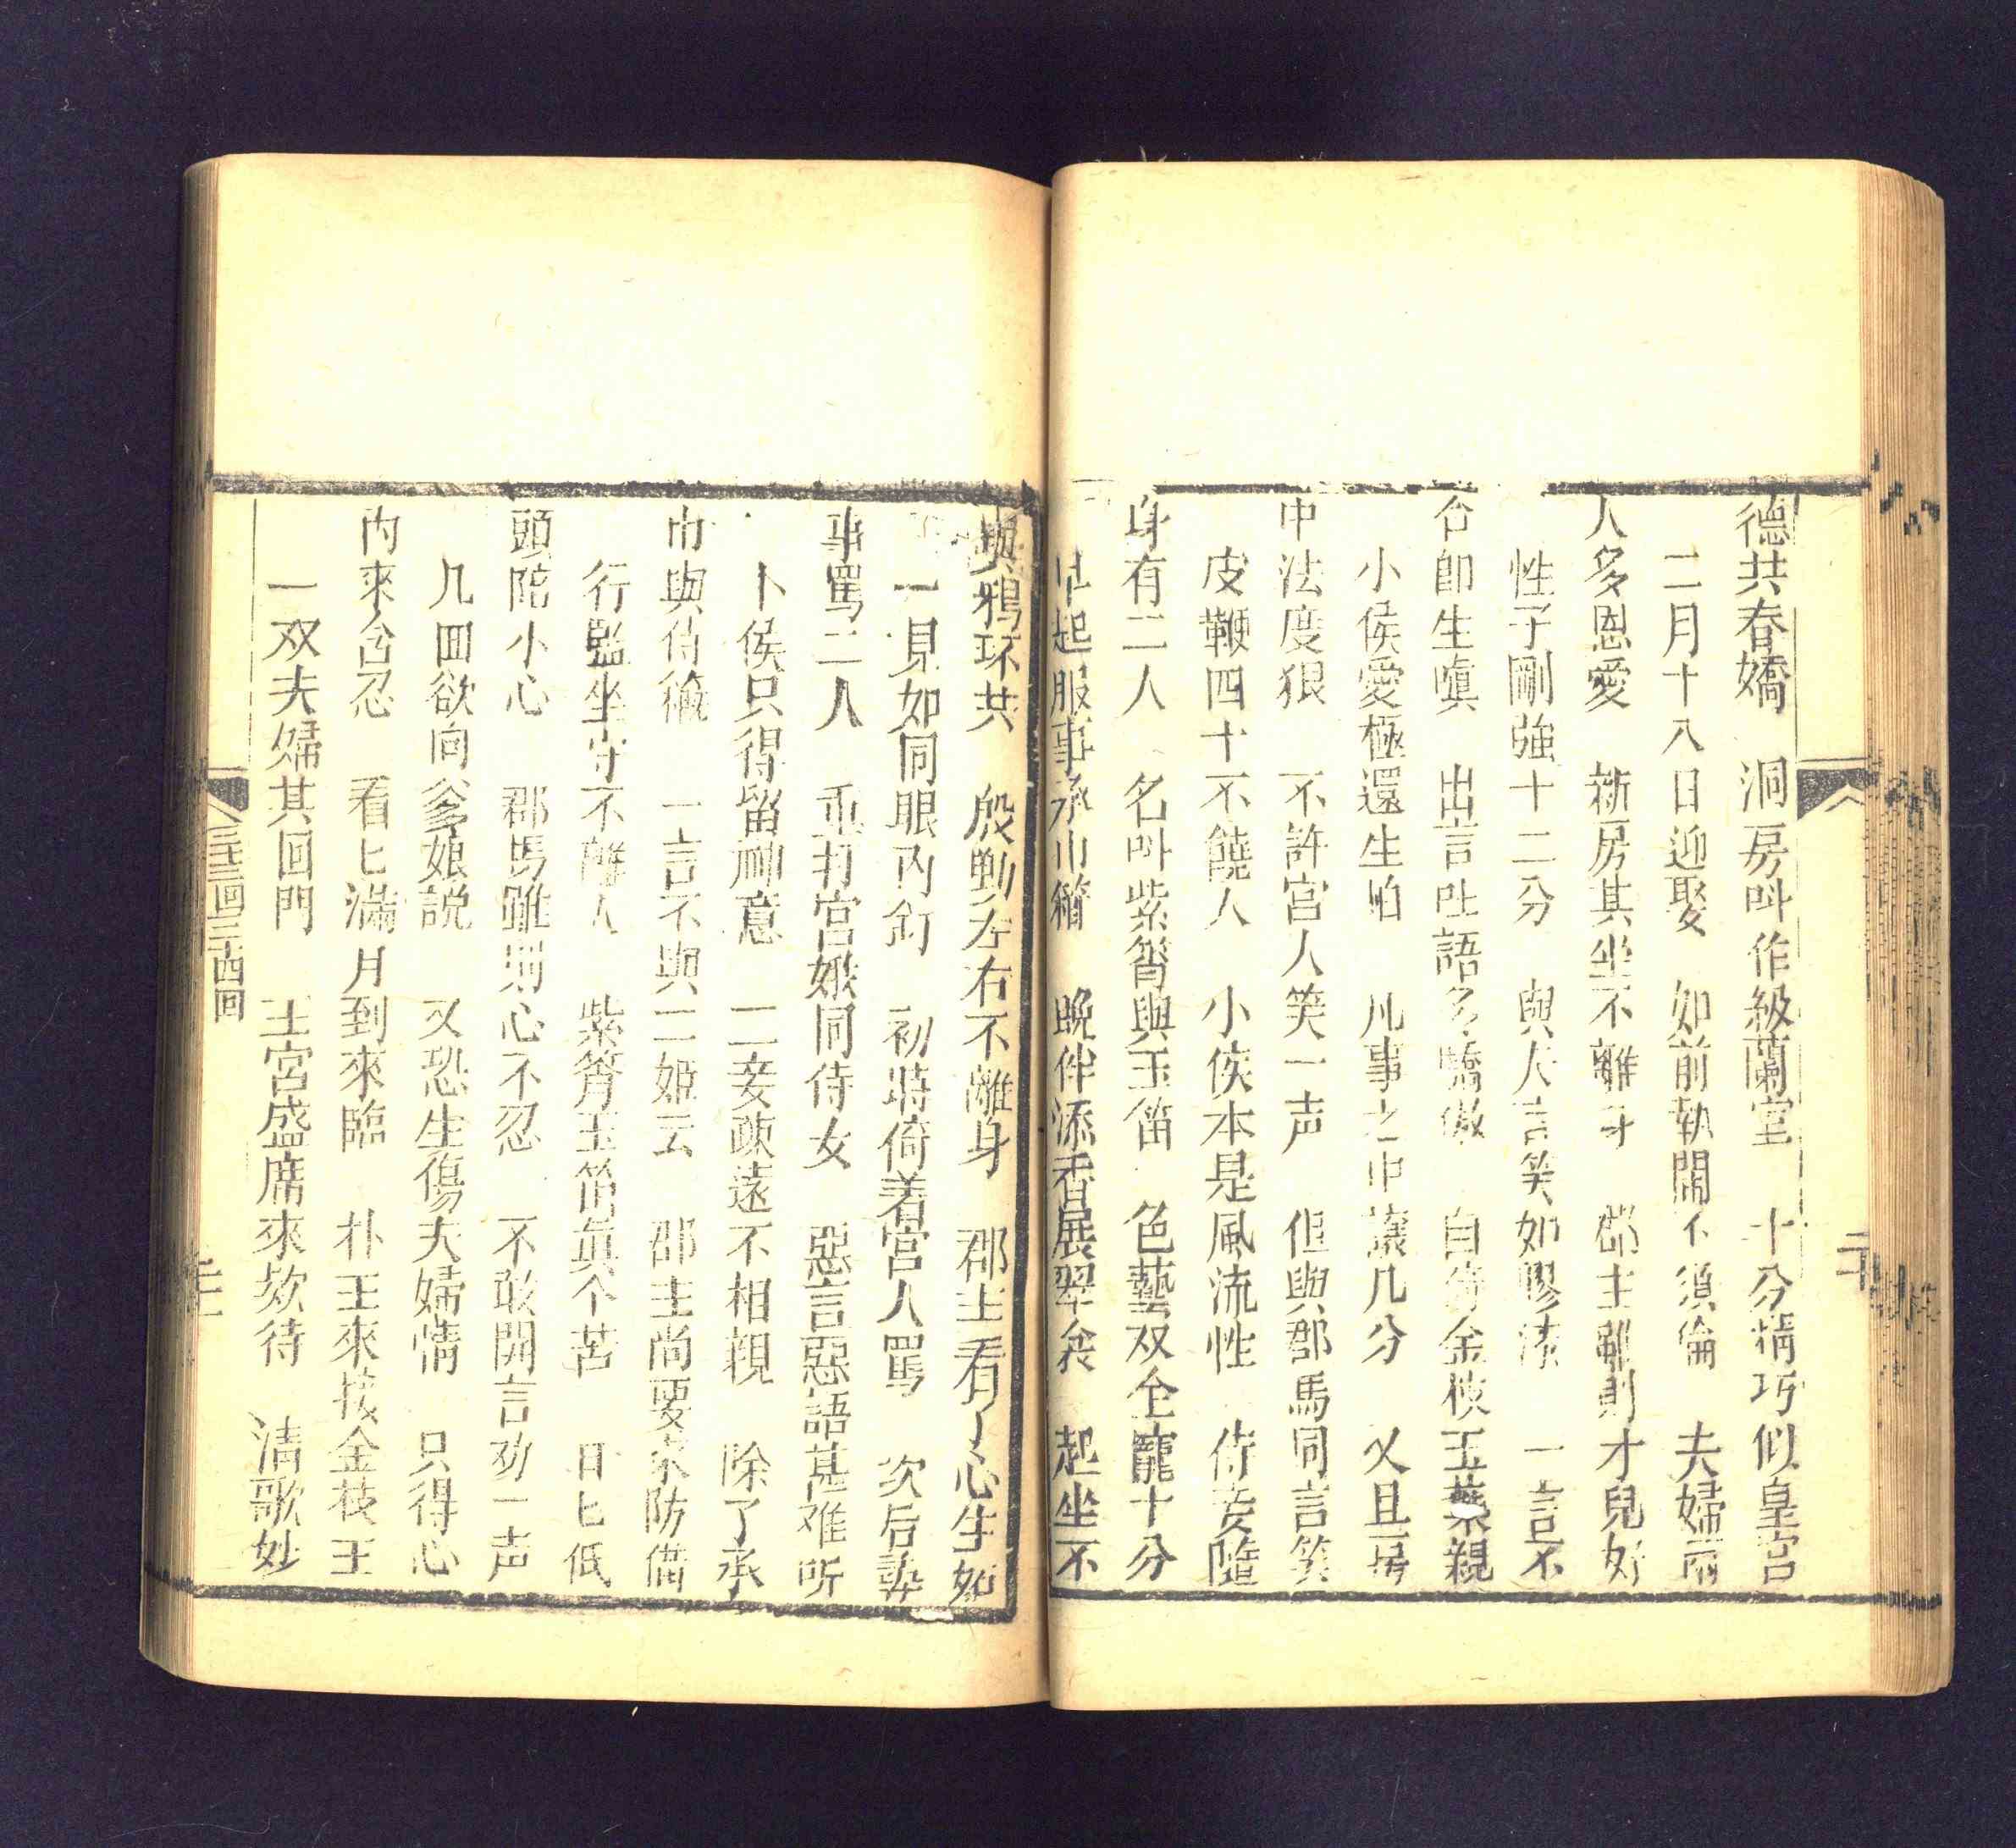 德共春嬌　洞房呌作級蘭堂　十分精巧似皇宮
二月十八日迎娶　如前執閙不須倫　夫婦兩
人多恩愛　新房其坐不離身　郡主雖則才兒好
性子剛強十二分　與夫言笑如膠漆　一言不
合卽生嗔　出言吐語多驕傲　自倚金枝玉葉親
小侯愛極還生怕　凡事之中讓几分　又且房
中法度狠　不許宮人笑一声　但與郡馬同言笑
皮鞭四十不饒人　小侯本是風流性　侍妾隨
身有二人　名呌紫簫與玉笛　色藝双全寵十分
早起服事承巾箱　晚伴添香展翠衾　起坐不
與鴉环共　殷勤左右不離身　郡主看了心生妬
一見如同眼內釘　初時倚着宮人罵　次后
事罵二人　重打宮娥同侍女　惡言惡語甚难听
卜侯只得留神意　二妾疎遠不相親　除了承
巾與侍　一言不與二姬云　郡主尚要來防俻
行監坐守不離人　紫簫玉笛眞个苦　日匕低
頭陀小心　郡馬雖則心不忍　不敢開言劝一声
几囬欲向爹娘説　又恐生傷夫婦情　只得心
內來含忍　看匕滿月到來臨　朴王來接金枝王
一双夫婦其回門　王宮盛席來欵待　清歌妙
三十三回三十四回
二十
二十一